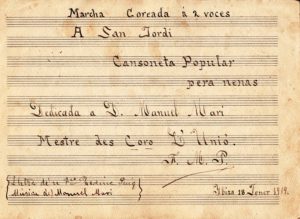 Marcha Coreada á 2 voces
A San Jordi
Cansoneta Popular
pera nenas
Dedicada a D. Manuel Mari
Mestre des Coro L'Unió.
F. M. P.
Lletra de
Música de Manuel Mari
Ibiza 18 Janer 1919.